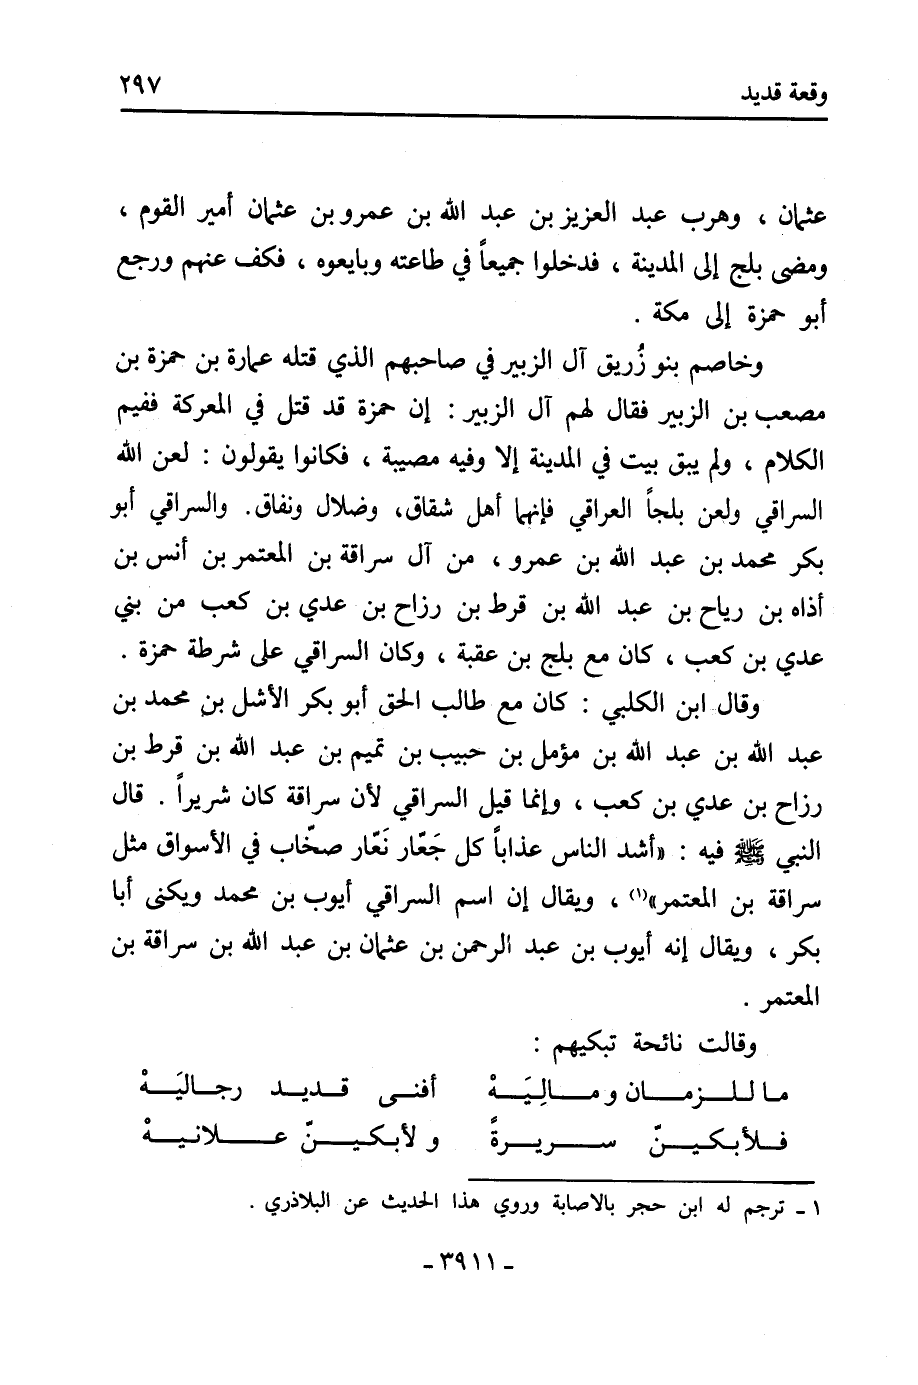 وقعة قديد ٢٩٧
عثمان ، وهرب عبد العزيز بن عبد الله بن عمرو بن عثمان أمير القوم ،
ومضى بلج إلى المدينة ، فدخلوا جميعاً في طاعته وبايعوه ، فكف عنهم ورجع
أبو حمزة إلى مكة .
وخاصم بنو زُريق آل الزبير في صاحبهم الذي قتله عمارة بن حمزة بن
مصعب بن الزبير فقال لهم آل الزبير : إن حمزة قد قتل في المعركة ففيم
الكلام ، ولم يبق بيت في المدينة إلا وفيه مصيبة ، فكانوا يقولون : لعن الله
السراقي ولعن بلجاً العراقي فإنهما أهل شقاق، وضلال ونفاق. والسراقي أبو
بكر محمد بن عبد الله بن عمرو ، من آل سراقة بن المعتمر بن أنس بن
أذاه بن رياح بن عبد الله بن قرط بن رزاح بن عدي بن كعب من بني
عدي بن كعب ، كان مع بلج بن عقبة ، وكان السراقي على شرطة حمزة .
وقال ابن الكلبي : كان مع طالب الحق أبو بكر الأشل بن محمد بن
عبد الله بن عبد الله بن مؤمل بن حبيب بن تميم بن عبد الله بن قرط بن
رزاح بن عدي بن كعب ، وإنما قيل السراقي لأن سراقة كان شريراً . قال
النبي ﷺ فيه : «أشد الناس عذاباً كل جَعّار نَعّار صخّاب في الأسواق مثل
سراقة بن المعتمر»(١) ، ويقال إن اسم السراقي أيوب بن محمد ويكنى أبا
بكر ، ويقال إنه أيوب بن عبد الرحمن بن عثمان بن عبد الله بن سراقة بن
المعتمر .
وقالت نائحة تبكيهم :
ما للـزمـان ومـالِيَـهْ أفنى قـديـد رجـاليَـهْ
فـلأبـكيـنّ سـريـرةً ولأبـكيـنّ عـلانيـهْ
١ - ترجم له ابن حجر بالاصابة وروي هذا الحديث عن البلاذري .
- ٣٩١١ -